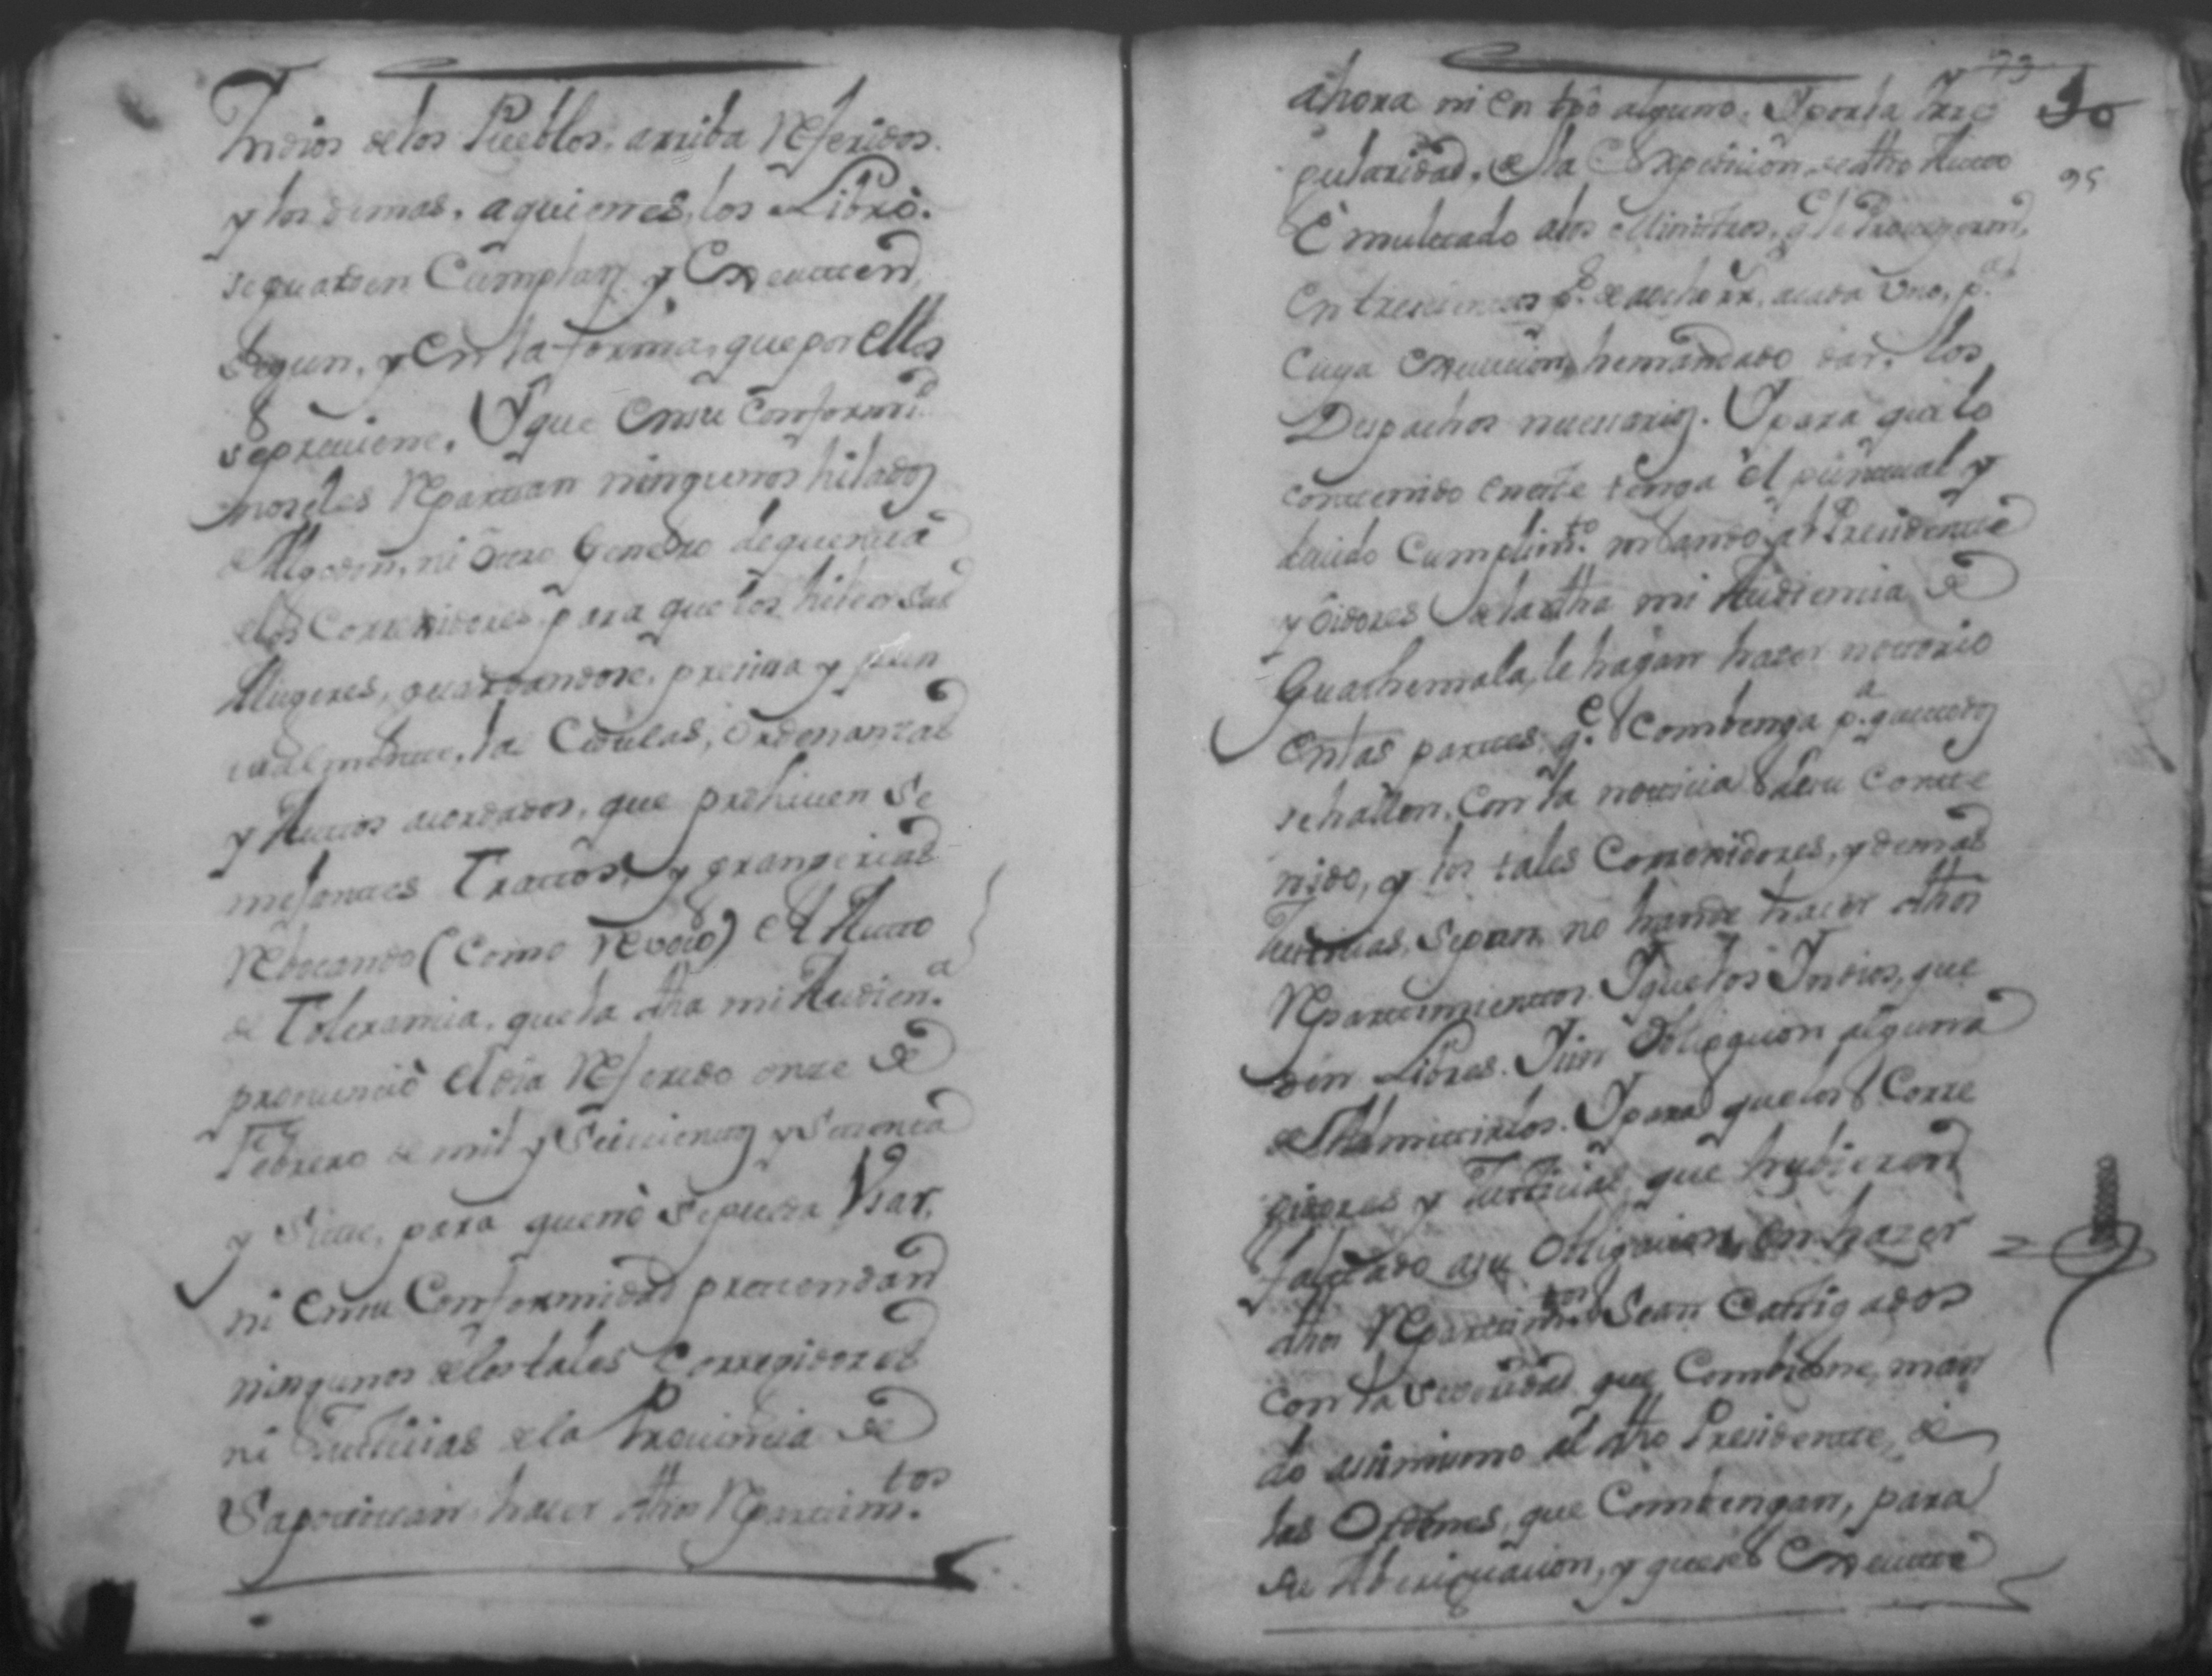 Indios de los Pueblos, arriba Referidos.
y los demas, a quienes los Libró.
se guarden Cumplan y Executen
Segun, y en la forma, que por ellos
se previene. Y que en su Conformd.
no se les Repartan ningunos hilados
de Algodon, ni otro Genero de quenta
de los Corregidores para que los hilen sus
Mugeres, guardandose, presissa y pun
tualmente, las Cedulas, ordenanzas
y Autos acordados, que prohiven se
mejantes Tratos, y grangerias
Rebocando (Como Reboco) el Auto
de Tolerancia, que la dha mi Audiena.
pronunció el dia Referido onze de
Febrero de mil y Seiscientos y Setenta
y Siete, para que no se pueda Vsar,
ni en su Conformidad pretendan
ningunos de los tales Corregidores
ni Justicias de la Provincia de
Sapotitan hacer dhos Repartimtos.
93
90
95
ahora ni en tpo alguno. Y por la Irre
gularidad, de la Expedicion, de dho Auto
É multado a los Ministros, q le Proveyeron,
en trescientos ps. de a ocho rr. a cada Vno, pa.
Cuya Execucion, he mandado dar, los
Despachos necessarios. Y para que lo
contenido en este tenga el puntual y
devido Cumplimto. mando al Presidente
y oidores de la dha mi Audiencia de
Guathemala, le hagan hacer notorio
en las partes, qe. Combenga pa. que todos
se hallen, Con la noticia de su Conte
nido, y los tales Corregidores, y demas
Justicias, sepan, no han de hacer dhos
Repartimientos. Y que los Indios, que
dan Libres. Y sin obligacion alguna
de Admitirlos. Y para que los Corre
gidores y Justicias, que hubieren
faltado a su Obligacion, en hazer
dhos Repartimtos. Sean Castigados
con la severidad que Combiene, man
do assimismo al dho Presidente, dé
las Ordenes, que Combengan, para
su Aberiguacion, y que se Execute